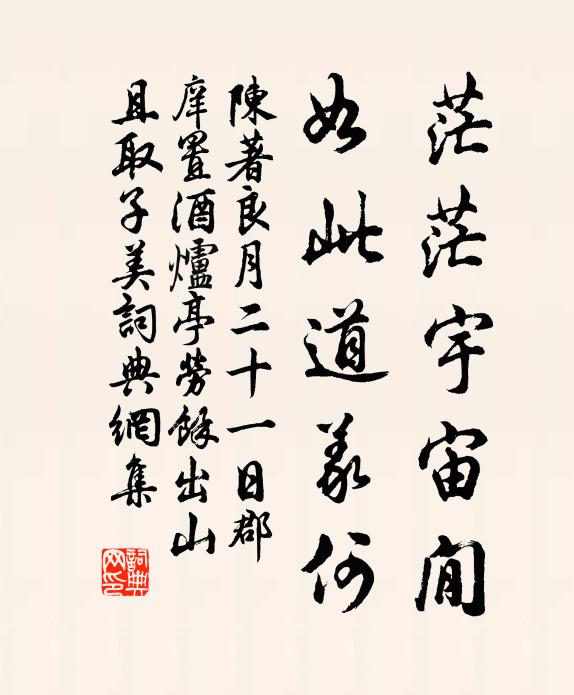 茫茫宇宙間
如此道義何
陳著良月二十一日郡
庠置酒爐亭勞餘出山
且取子美詞典網集
詞典網印